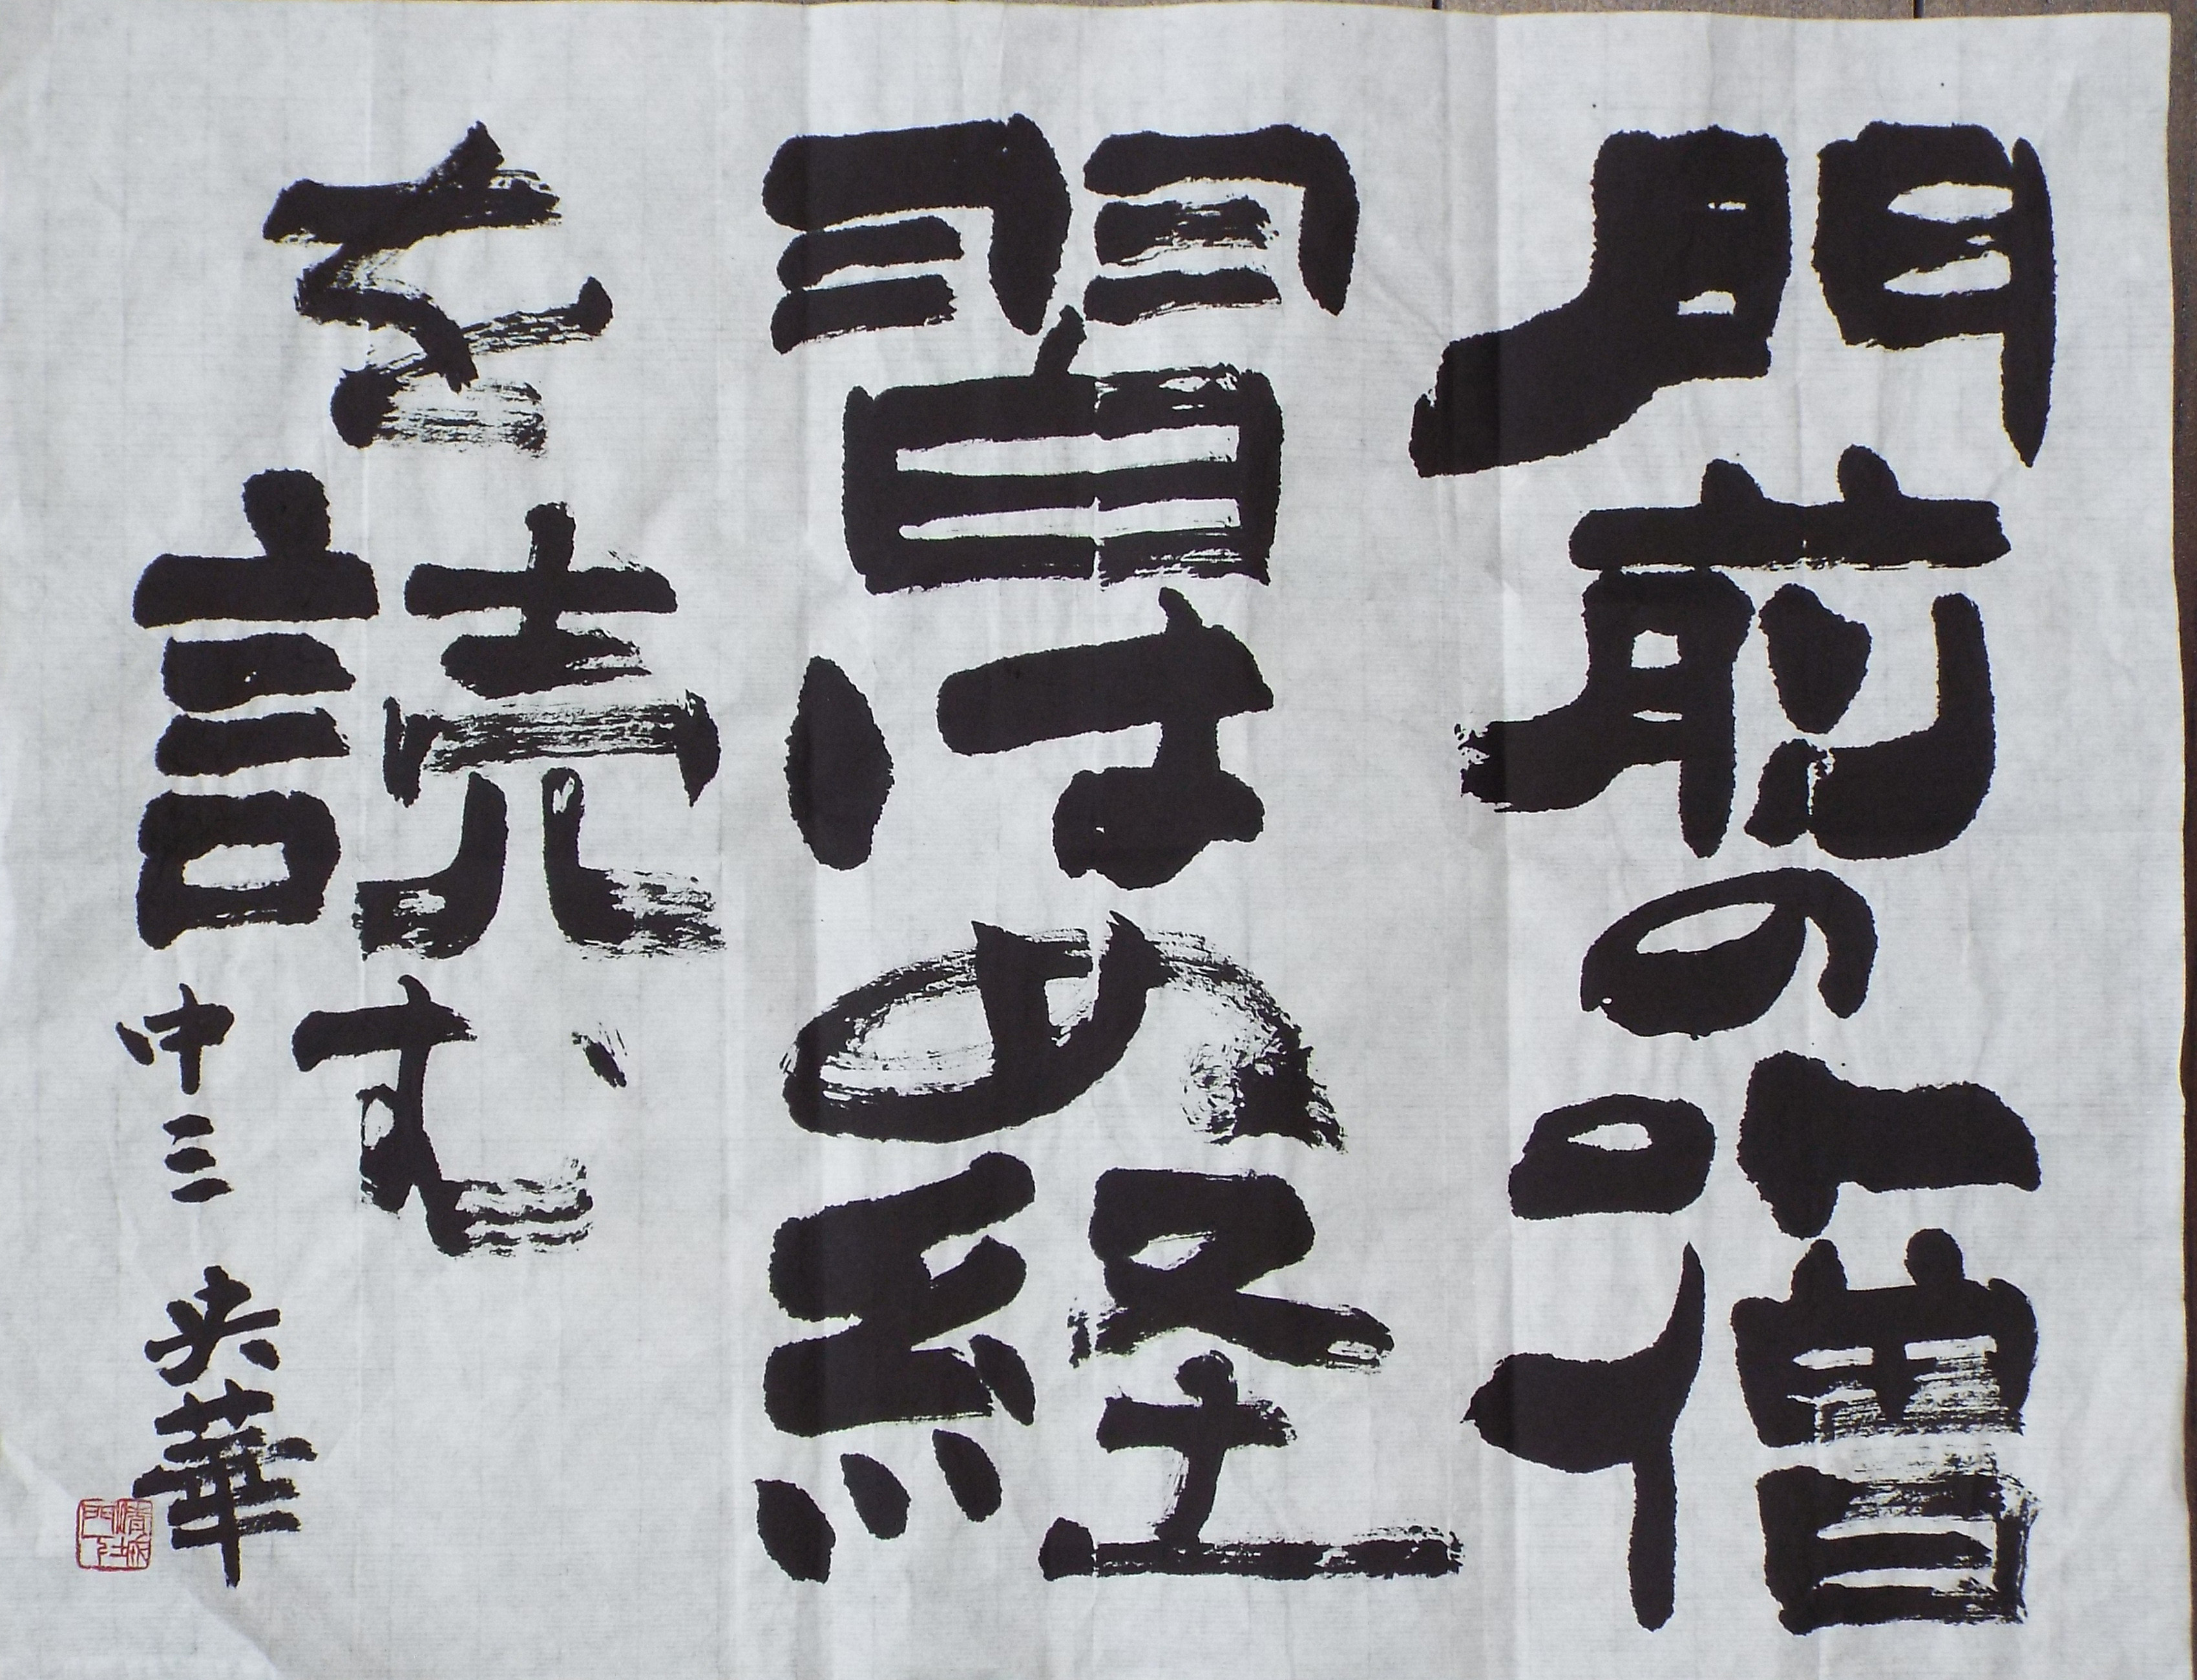 門前の小僧
習はぬ経
を読む
中三 央華